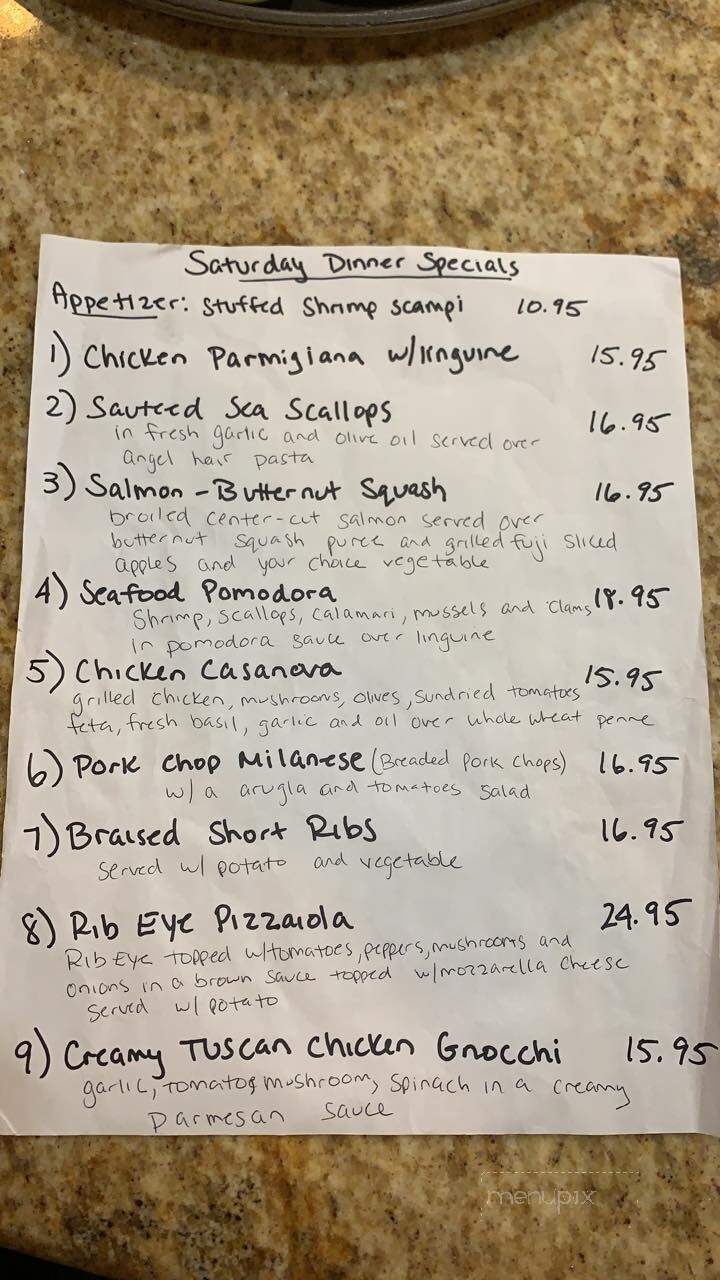 Saturday Dinner Specials
Appetizer: Stuffed Shrimp Scampi 10.95
1) Chicken Parmigiana w/linguine 15.95
2) Sauteed Sea Scallops 16.95
in fresh garlic and olive oil served over
angel hair pasta
3) Salmon - Butternut Squash 16.95
broiled center-cut salmon served over
butternut squash puree and grilled fuji sliced
apples and your choice vegetable
4) Seafood Pomodora 18.95
Shrimp, scallops, calamari, mussels and clams
in pomodora sauce over linguine
5) Chicken Casanova 15.95
grilled chicken, mushrooms, olives, sundried tomatoes
feta, fresh basil, garlic and oil over whole wheat penne
6) Pork Chop Milanese (Breaded Pork Chops) 16.95
w/ a arugla and tomatoes salad
7) Braised Short Ribs 16.95
served w/ potato and vegetable
8) Rib Eye Pizzaiola 24.95
Rib Eye topped w/tomatoes, peppers, mushrooms and
onions in a brown sauce topped w/mozzarella cheese
served w/ potato
9) Creamy Tuscan Chicken Gnocchi 15.95
garlic, tomatos mushroom, spinach in a creamy
Parmesan sauce
menupix